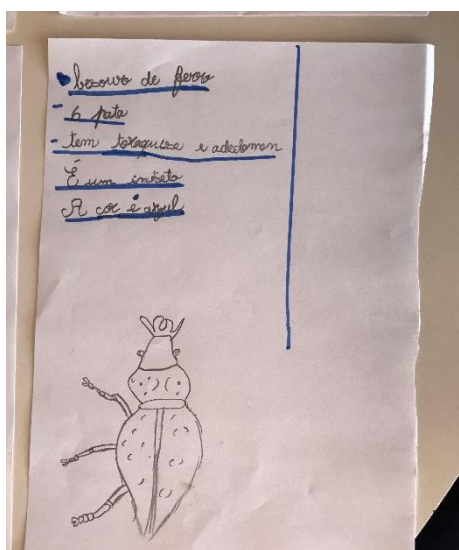 besouro de ferro
6 pata
tem toraquise e adedomen
É um inseto
A cor é azul